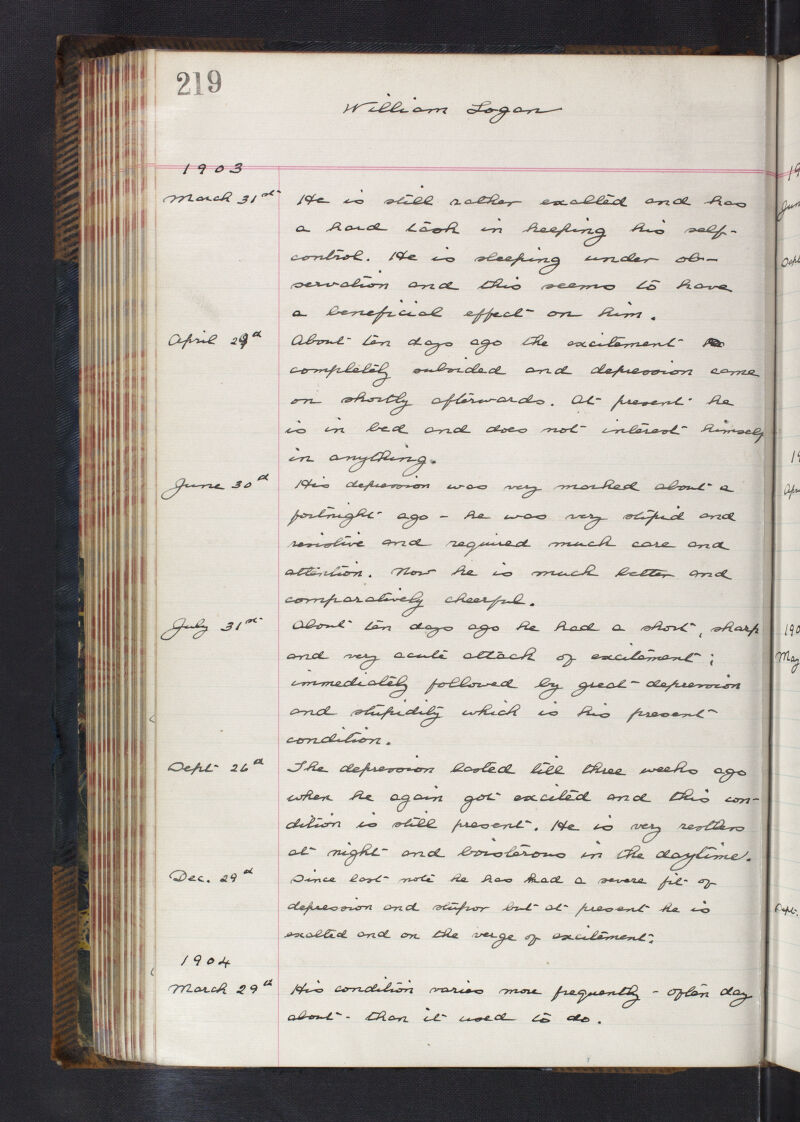 219
William Logan
1903
March 31st He is still rather exalted and has
a hard task in keeping his self-
control. He is sleeping under ob-
servation and this seems to have
a beneficial effect on him.
April 29th About ten days ago the excitement
completely subsided and depression came
on shortly afterwards. At present he
is in bed and does not interest himself
in anything.
June 30th His depression was very marked about a
fortnight ago - he was very stupid and
resistive and required much care and
attention. Now he is much better and
comparatively cheerful.
July 31st About ten days ago he had a short, sharp
and very acute attack of excitement;
immediately followed by great depression
and stupidity which is his present
condition.
Sept 26th The depression lasted till three weeks ago
when he again got excited and this con-
dition is still present. He is very restless
at night and boisterous in the daytime.
Dec. 29th Since last note he has had a severe fit of
depression and stupor but at present he is
exalted and on the verge of excitement.
1904
March 29th His condition varies more frequently - often day
about - than it used to do.
19
Jun
Sept
19
Apr
190
May
Sept.